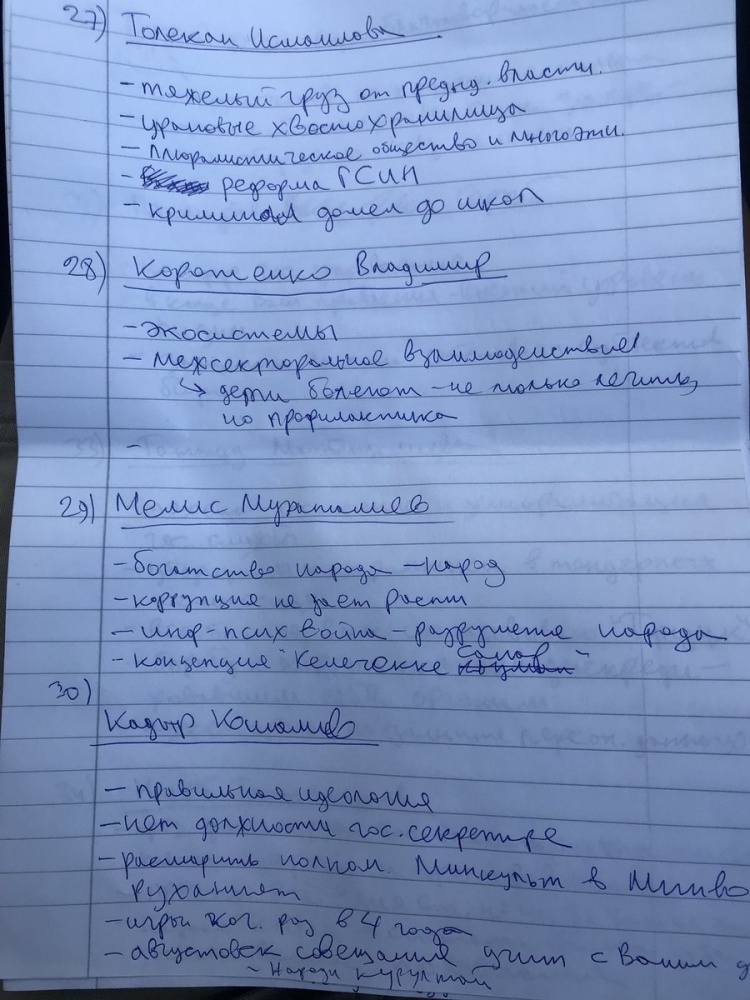 27) Толекан Исмаилова
- тяжелый груз от предыд. власти.
- урановые хвостохранилища
- плюралистическое общество и многоэтн.
- реформа ГСИН
- криминал дошел до школ
28) Коротенко Владимир
- экосистемы
- межсекторальное взаимодействие
↳ дети болеют - не только лечить,
но профилактика
-
29) Мелис Мураталиев
- богатство народа - народ
- коррупция не дает расти
- инф-псих война - разрушение народа
- концепция "Келечекке сапар"
30)
Кадыр Кошалиев
- правильная идеология
- нет должности гос. секретаря
- расширить полном. Минкульт в Мин-во
руханият
- игры коч. раз в 4 года
- августовск совещания учит с Вашим
- Народн курултай